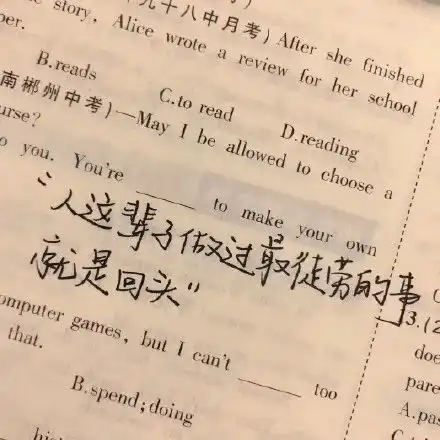 九十八中月考) After she finished
story, Alice wrote a review for her school
per.
B.reads
C.to read
D.reading
南郴州中考)—May I be allowed to choose a
urse?
o you. You're ______ to make your own
“人这辈子做过最徒劳的事
就是回头”
omputer games, but I can't ______ too
that.
B.spend;doing
3.(2
doe
pare
A.pas